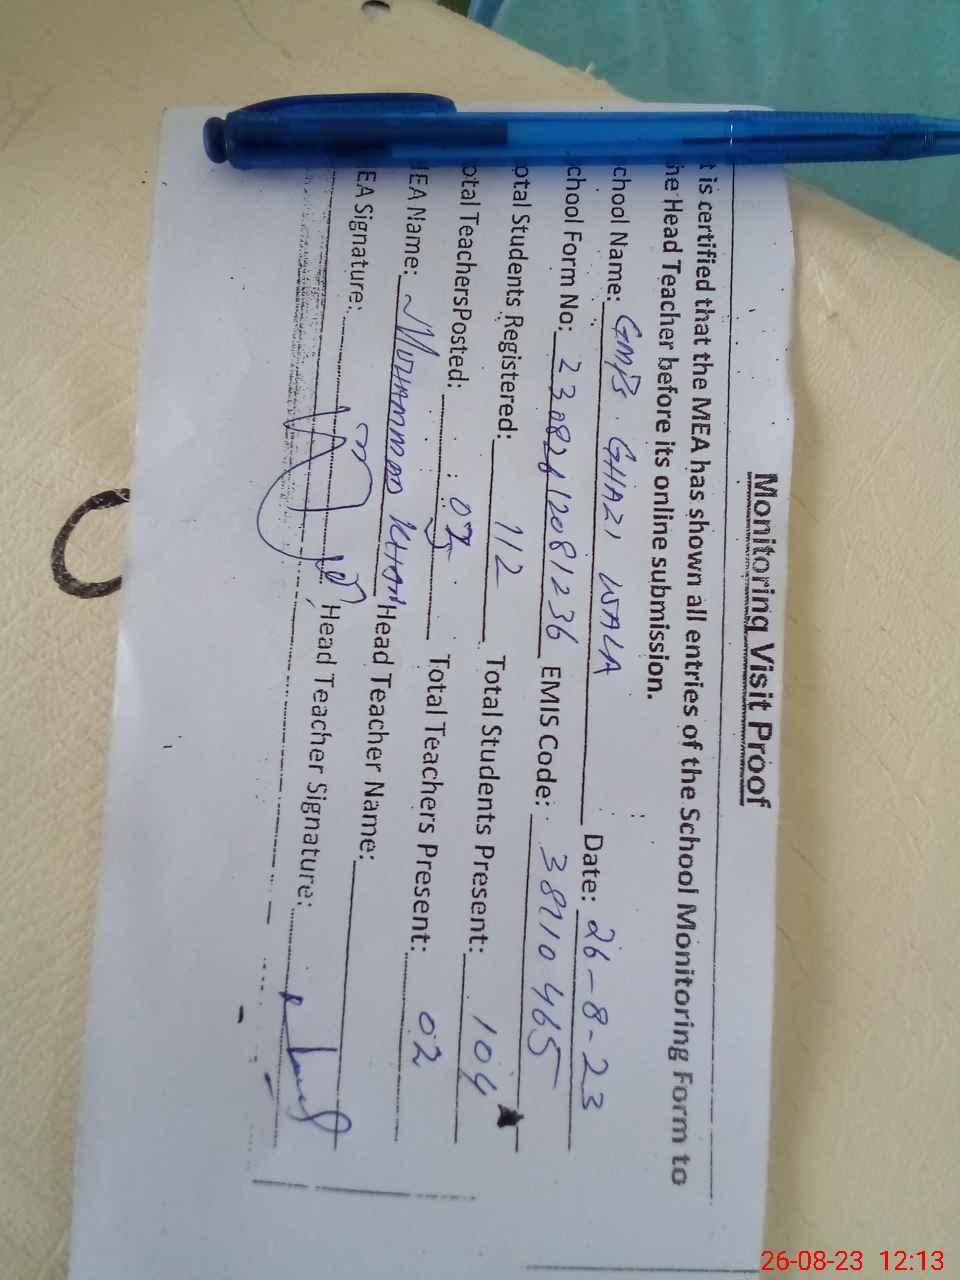 Monitoring Visit Proof
t is certified that the MEA has shown all entries of the School Monitoring Form to
he Head Teacher before its online submission.
chool Name: GMPS GHAZI WALA Date: 26-8-23
chool Form No: EMIS Code: 38210465
otal Students Registered: 112 Total Students Present: 104
otal TeachersPosted: 02 Total Teachers Present: 02
EA Name: MUHAMMAD KHAN Head Teacher Name:
EA Signature: Head Teacher Signature:
26-08-23 12:13